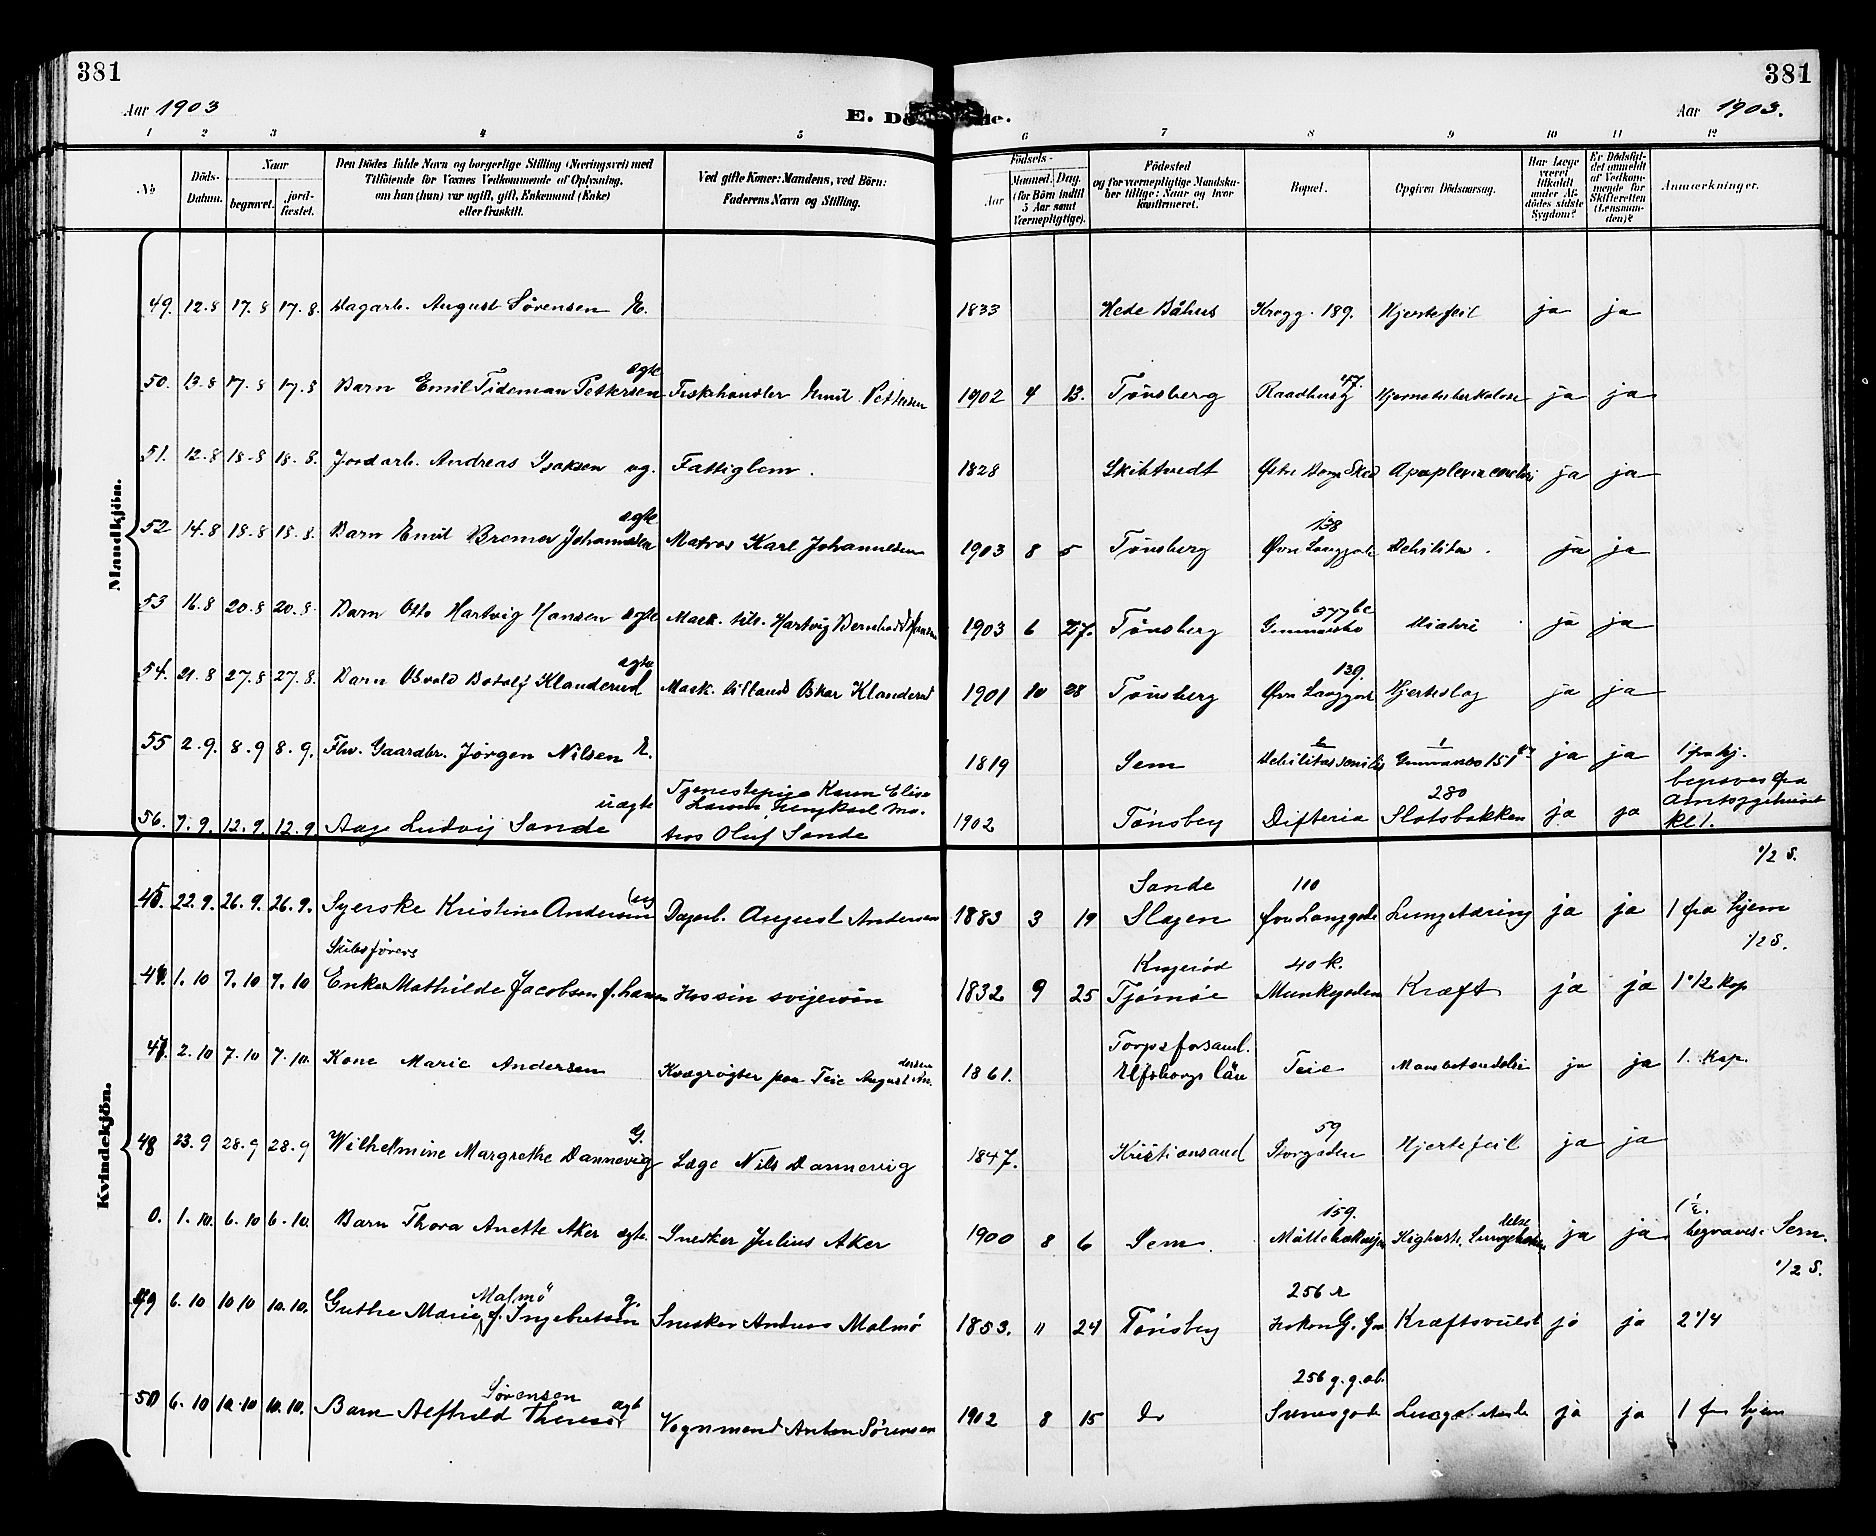 381
381
Aar 1903
E. Dø de.
Aar 1903.
1 2 3 4 5 6 7 8 9 10 11 12
No
Döds-Datum.
Naar
begravet.
jord-fæstet.
Den Dödes fulde Navn og borgerlige Stilling (Næringsvei) med
Tilföiende for Voxnes Vedkommende af Oplysning,
om han (hun) var ugift, gift, Enkemand (Enke)
eller fraskilt.
Ved gifte Koner: Mandens, ved Börn:
Faderens Navn og Stilling.
Födsels-
Aar
Maaned. Dag.
(for Börn indtil
5 Aar samt
Værnepligtige).
Födested
og for værnepligtige Mandska-
ber tillige: Naar og hvor
konfirmeret.
Bopæl.
Opgiven Dödsaarsag.
Har Læge
været
tilkaldt
under Af-
dödes sidste
Sygdom?
Er Dödsfal-
det anmeldt
af Vedkom-
mende for
Skifteretten
(Lensman-
den)?
Anmærkninger.
Mandkjön.
49. 12.8 17.8 17.8. Dagarb. August Sörensen E. 1833 Hede Båhus Krogg. 189. Hjertefeil ja ja
50. 13.8 17.8 17.8 Barn Emil Tideman Pettersen ægte Fiskehandler Emil Pettersen 1902 4 13. Tønsberg Raadhusg 47. Hjernetuberkulose ja ja
51. 12.8 18.8 18.8. Jordarb. Andreas Isaksen ug. Fattiglem. 1828 Skibtvedt Apoplexia cerebri ja ja
52 14.8 18.8 18.8. Barn Emil Bremer Johannesen ægte Matros Karl Johannesen 1903 8 5 Tønsberg Øvre Langgade 138 Debilitas. ja ja
53 16.8 20.8 20.8. Barn Otto Hartvig Hansen ægte Mask. Hartvig Bernhard Hansen 1903 6 27. Tønsberg 377 bc ja ja
54. 21.8 27.8 27.8. Barn Osvald Botolf Klanderud ægte Mask. Oskar Klanderud 1901 10 28 Tønsberg Øvre Langgade 139. Hjerteslag ja ja
55 2.9. 8.9 8.9. Fhv. Gaardbr. Jørgen Nilsen E. 1819 Sem Debilitas senilis 151 ja ja 1 fra hj.
56. 7.9. 12.9 12.9 Aage Ludvig Sande uægte Tjenestepige Karen Elise
Larsen, Matros Oluf Sande 1902 Tønsberg Difteria 280 Slotsbakken ja ja begraves fra
Amtssygehuset
kl 1.
Kvindekjön.
45. 22.9. 26.9. 26.9. Syerske Kristine Andersen (ug Dagarb. August Andersen 1883 3 19 Sande
Slagen 110
Øvre Langgade Lungetæring ja ja 1 fra hjem 1/2 S.
46. 1.10 7.10 7.10 Skibsførers
Enke Mathilde Jacobsen f. Larsen Hos sin svigersøn 1832 9 25 Tjømøe 40 k.
Munkegaden Kræft ja ja 1 1/2 kap 1/2 S.
47. 2.10 7.10 7.10. Kone Marie Andersen Kvægrøgter paa Teie August Andersen 1861. Torps forsaml.
Elfsborgs län Teie ja ja 1. Kap.
48 23.9 28.9 28.9 Wilhelmine Margrethe Dannevig G. Læge Nils Dannevig 1847. Kristiansand 59
Storgaden Hjertefeil ja ja
0. 1.10. 6.10 6.10. Barn Thora Anette Aker ægte. Snedker Julius Aker 1900 8 6 Sem. 159.
Møllebakken Kighoste, ja ja 1 1/2.
begraves i Sem.
49 6.10 10 10 10.10. Guthe Marie Malmö f. Ingebretsen g. Snedker Anders Malmö 1853. 11 24 Tönsberg 256 r
Hakon G. Gade Kræftsvulst ja ja 2 1/4 1/2 S.
50 6.10 10.10 10.10. Barn Alfhild Therese Sørensen ægte Vognmand Anton Sörensen 1902 8 15 do 256 g.g.ab.
ja ja 1 fra hjem